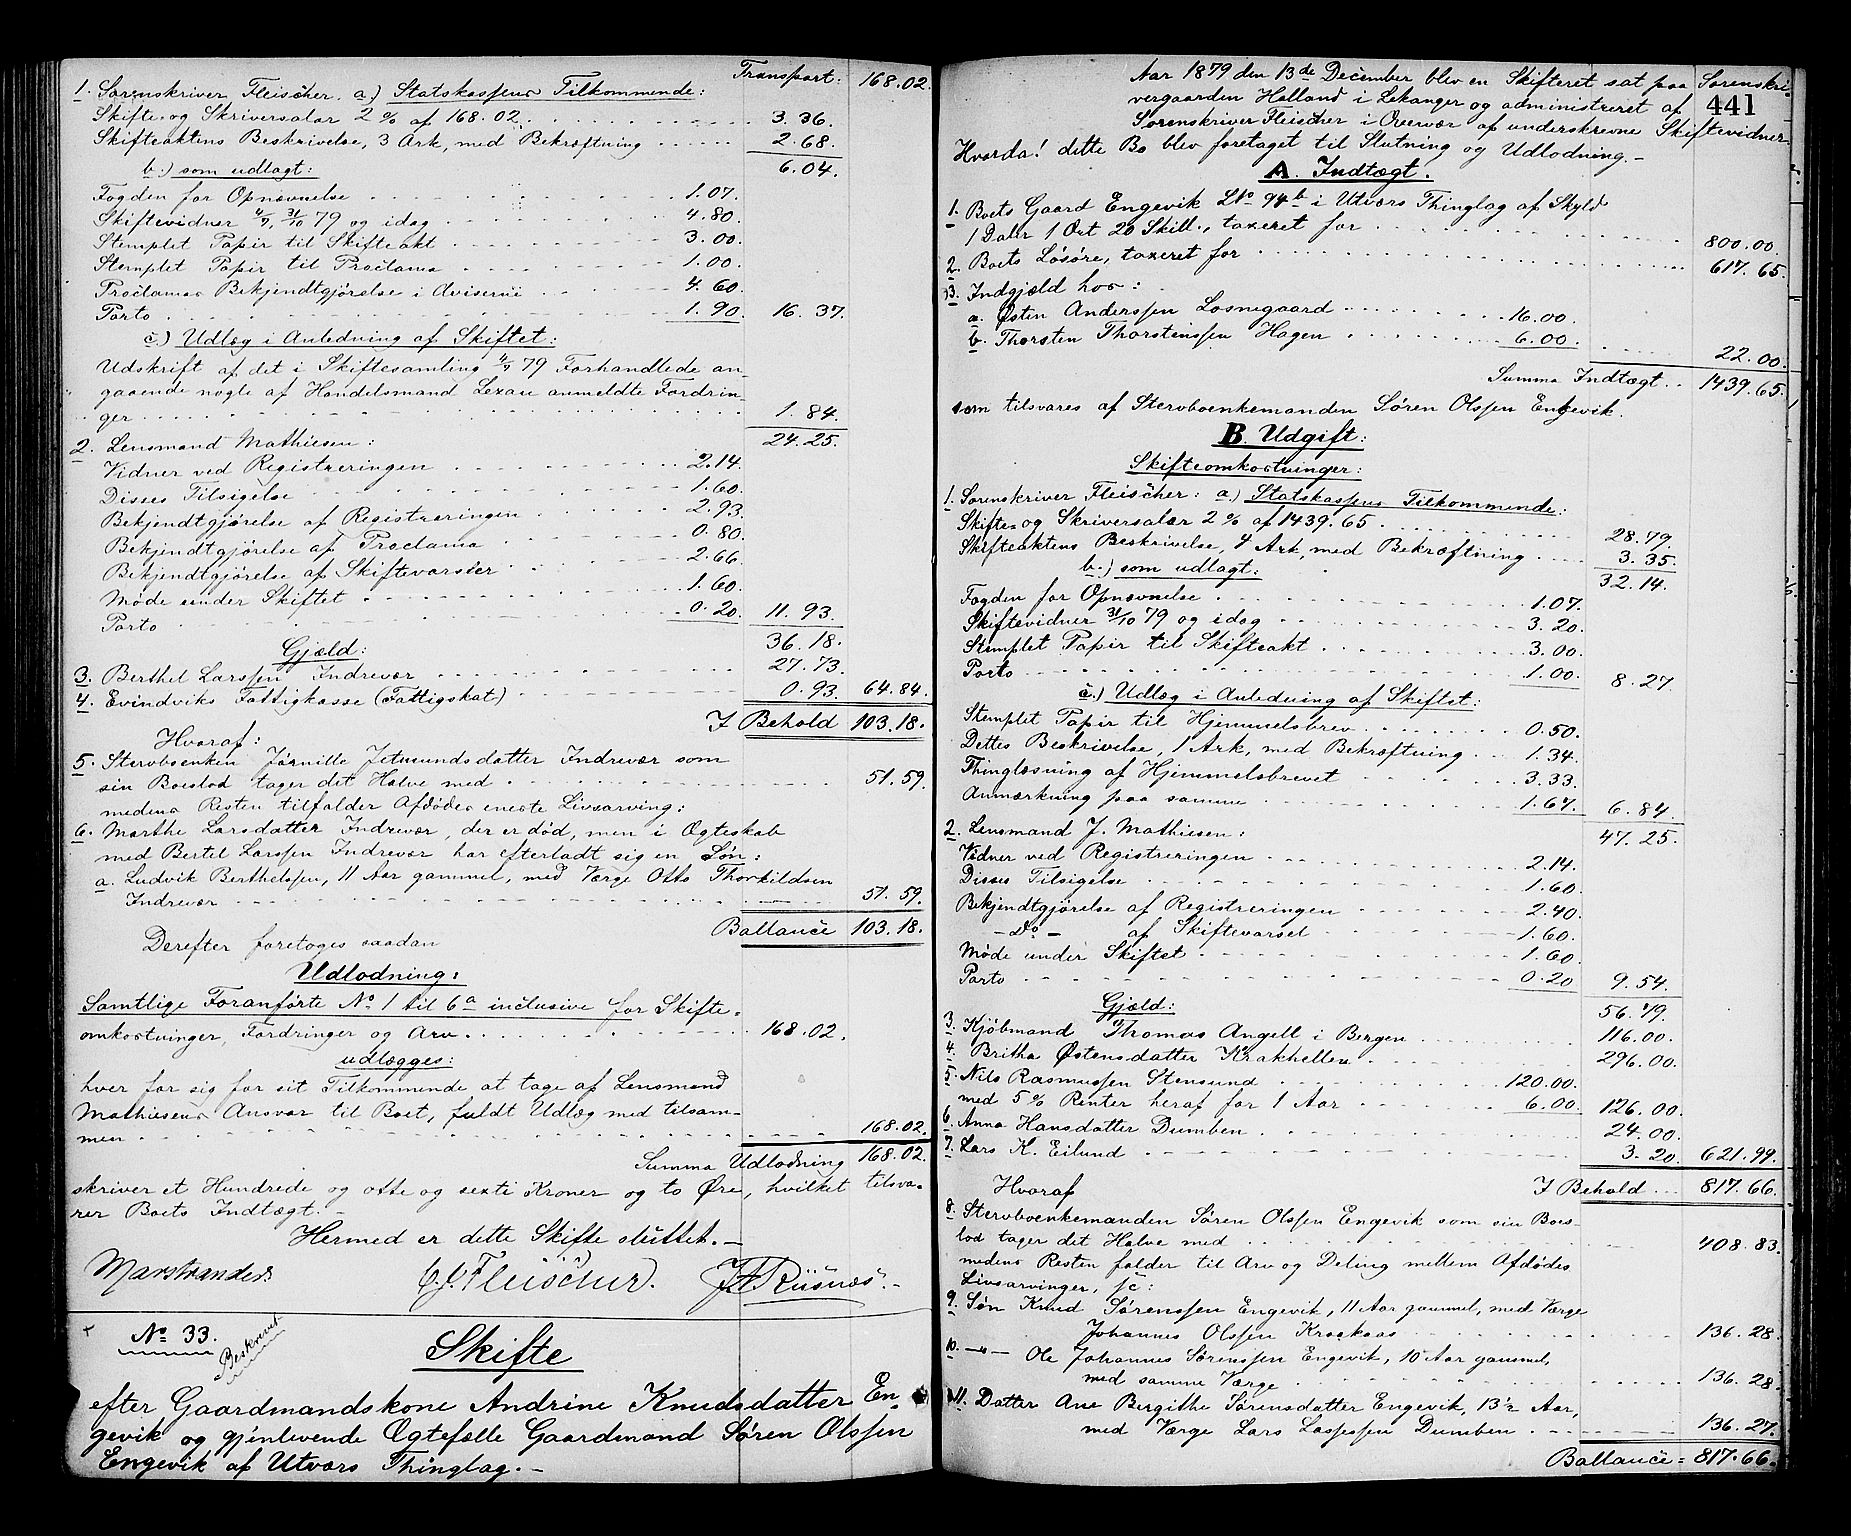 Transport: 168.02.
1. Sorenskriver Fleischer. a.) Statskassens Tilkommende:
Skifte- og Skriversalar 2 % af 168.02. 3.36.
Skifteaktens Beskrivelse, 3 Ark, med Bekræftning 2.68.
b.) som udlagt: 6.04.
Fogden for Opnævnelse 1.07.
Skiftevidner 4/7, 31/10 79 og idag 4.80.
Stemplet Papir til Skifteakt 3.00.
Stemplet Papir til Proclama 1.00.
Proclamas Bekjendtgjørelse i Aviserne 4.60.
Porto 1.90. 16.37.
c.) Udlæg i Anledning af Skiftet:
Udskrift af det i Skiftesamling 4/7 79 Forhandlede an-
gaaende nogle af Handelsmand Lexau anmeldte Fordrin-
ger 1.84.
24.25.
2. Lensmand Mathiesen:
Vidner ved Registreringen 2.14.
Disses Tilsigelse 1.60.
Bekjendtgjørelse af Registreringen 2.93.
Bekjendtgjørelse af Proclama 0.80.
Bekjendtgjørelse af Skiftevarsler 2.66.
Møde under Skiftet 1.60.
Porto 0.20. 11.93.
Gjæld: 36.18.
3. Berthel Larssen Indrevær 27.73.
4. Evindviks Fattigkasse (Fattigskat) 0.93. 64.84.
I Behold 103.18.
Hvoraf:
5. Stervboenken Jørnille Jetmundsdatter Indrevær som
sin Boeslod tager det Halve med 51.59.
medens Resten tilfalder Afdødes eneste Livsarving:
6. Marthe Larsdatter Indrevær, der er død, men i Ægteskab
med Bertel Larssen Indrevær har efterladt sig en Søn:
a. Ludvik Berthelssen, 11 Aar gammel, med Værge Otto Thorkildsen
Indrevær 51.59.
Ballance 103.18.
Derefter foretoges saadan
Udlodning:
Samtlige Foranførte No 1 til 6a inclusive for Skifte-
omkostninger, Fordringer og Arv 168.02.
udlægges:
hver for sig for sit Tilkommende at tage af Lensmand
Mathiesens Ansvar til Boet, fuldt Udlæg med tilsam-
men 168.02.
Summa Udlodning 168.02.
skriver et Hundrede og otte og sexti Kroner og to Øre, hvilket tilsva-
rer Boets Indtægt.-
Hermed er dette Skifte sluttet.-
Marstrander. C. C. Fleischer. J A Risnæs.-
No 33. Beskrevet
Skifte
efter Gaardmandskone Andrine Knudsdatter En-
gevik og gjenlevende Ægtefælle Gaardmand Søren Olssen
Engevik af Utværs Thinglag.-
441
Aar 1879 den 13de December blev en Skifteret sat paa Sorenskri-
vergaarden Halland i Lekanger og administreret af
Sorenskriver Fleischer i Overvær af underskrevne Skiftevidner
Hvorda! dette Bo blev foretaget til Slutning og Udlodning.-
A. Indtægt.
1. Boets Gaard Engevik LNo 94b i Utværs Thinglag af Skyld
1 Daler 1 Ort 20 Skill., taxeret for 800.00.
2. Boets Løsøre, taxeret for 617.65.
3. Indgjæld hos:
a. Østen Anderssen Losnegaard 16.00.
b. Thorsten Thorstenssen Hagen 6.00. 22.00.
Summa Indtægt 1439.65.
som tilsvares af Stervboenkemanden Søren Olssen Engevik.
B. Udgift:
Skifteomkostninger:
1. Sorenskriver Fleischer: a.) Statskassens Tilkommende:
Skifte- og Skriversalær 2 % af 1439.65. 28.79.
Skifteaktens Beskrivelse, 4 Ark, med Bekræftning 3.35.
b.) som udlagt: 32.14.
Fogden for Opnævnelse 1.07.
Skiftevidner 31/10 79 og idag 3.20.
Stemplet Papir til Skifteakt 3.00.
Porto 1.00. 8.27.
c.) Udlæg i Anledning af Skiftet:
Stemplet Papir til Hjemmelsbrev 0.50.
Dettes Beskrivelse, 1 Ark, med Bekræftning 1.34.
Thinglæsning af Hjemmelsbrevet 3.33.
Anmærkning paa samme 1.67. 6.84.
2. Lensmand J. Mathiesen: 47.25.
Vidner ved Registreringen 2.14.
Disses Tilsigelse 1.60.
Bekjendtgjørelse af Registreringen 2.40.
-do- af Skiftevarsel 1.60.
Møde under Skiftet 1.60.
Porto 0.20 9.54.
Gjæld: 56.79.
3. Kjøbmand Thomas Angell i Bergen 116.00.
4. Britha Østensdatter Krakhellen 296.00.
5. Nils Rasmussen Stensund 120.00.
med 5 % Renter heraf for 1 Aar 6.00. 126.00.
6. Anna Hansdatter Dumben 24.00.
7. Lars K. Eilund 3.20. 621.99.
I Behold 817.66.
Hvoraf
8. Stervboenkemanden Søren Olssen Engevik som sin Boes-
lod tager det Halve med 408.83.
medens Resten falder til Arv og Deling mellem Afdødes
Livsarvinger, sc:
9. Søn Knud Sørenssen Engevik, 11 Aar gammel, med Værge
Johannes Olssen Kraakaas 136.28.
10. -"- Ole Johannes Sørenssen Engevik, 10 Aar gammel,
med samme Værge 136.28.
11. Datter Ane Bergithe Sørensdatter Engevik, 13½ Aar,
med Værge Lars Lassessen Dumben 136.27.
Ballance = 817.66.